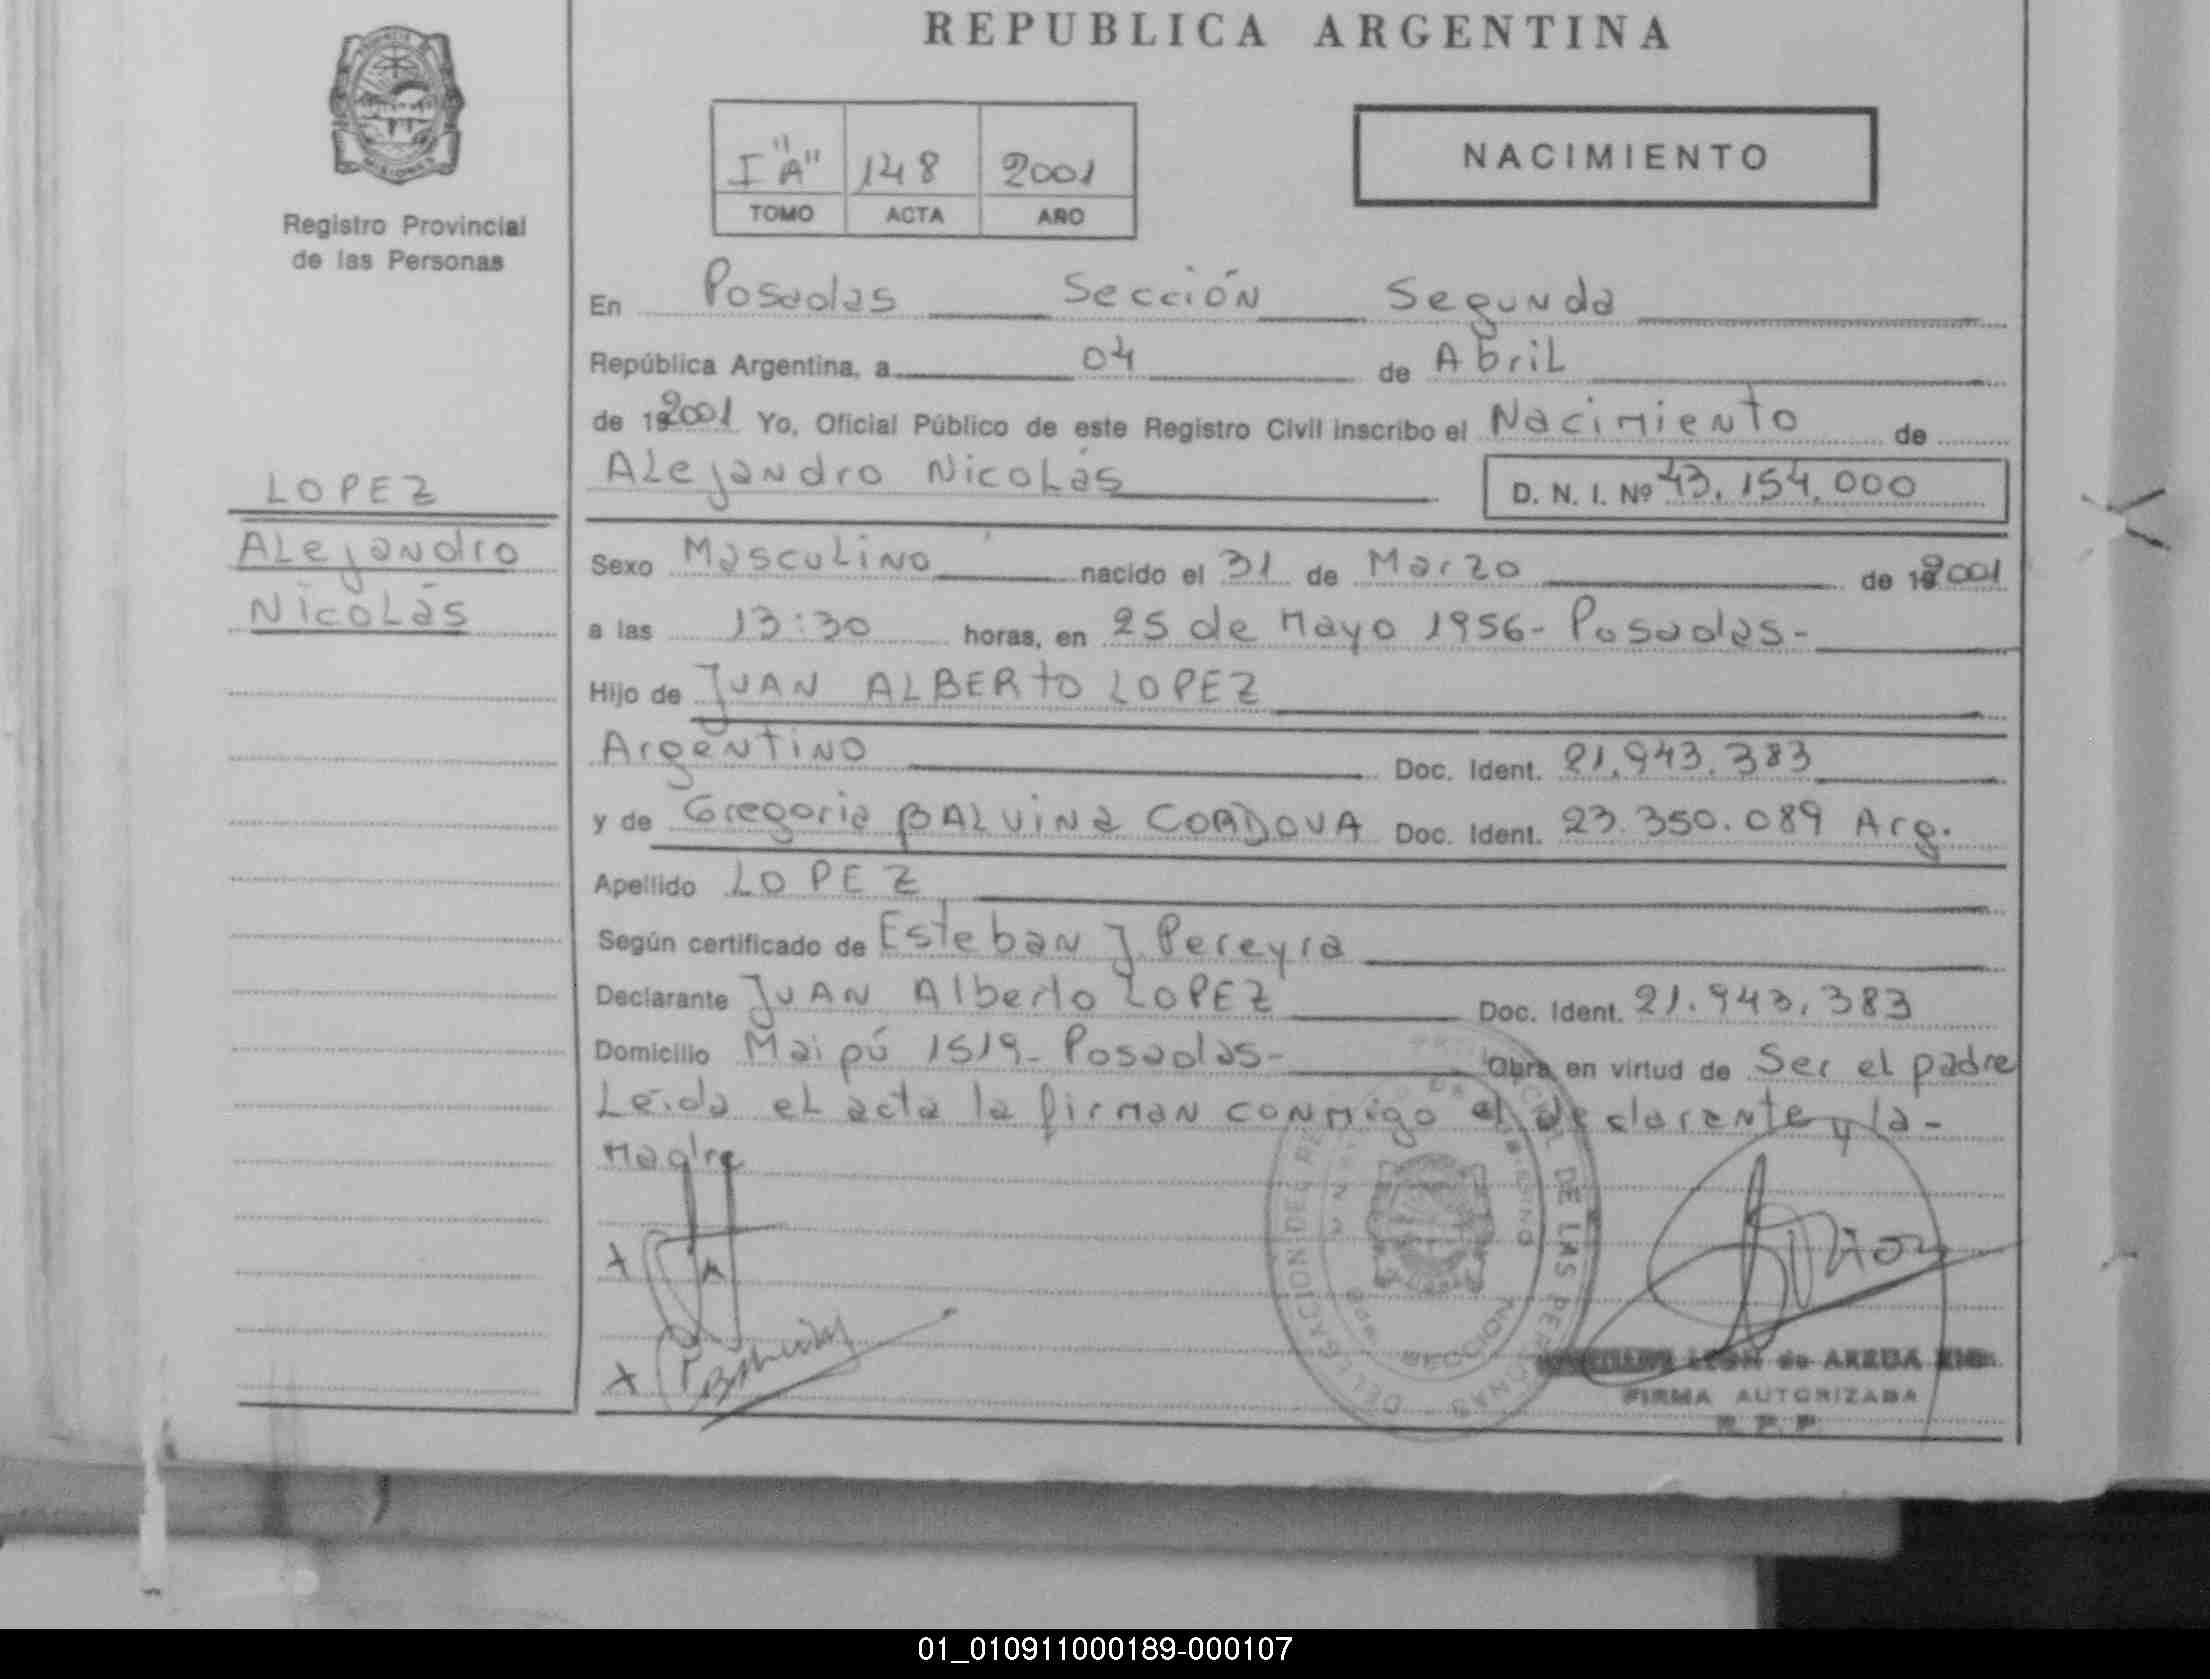 REPUBLICA ARGENTINA
I "A" 148 2001
TOMO ACTA AÑO
NACIMIENTO
Registro Provincial
de las Personas
LOPEZ
Alejandro
Nicolás
En Posadas Sección Segunda
República Argentina, a 04 de Abril
de 192001 Yo, Oficial Público de este Registro Civil inscribo el Nacimiento de
Alejandro Nicolás D. N. I. Nº 43.154.000
Sexo Masculino nacido el 31 de Marzo de 192001
a las 13:30 horas, en 25 de Mayo 1956- Posadas-
Hijo de JUAN ALBERTO LOPEZ
Argentino Doc. Ident. 21.943.383
y de Gregoria BALVINA CORDOVA Doc. Ident. 23.350.089 Arg.
Apellido LOPEZ
Según certificado de Esteban J. Pereyra
Declarante JUAN Alberto LOPEZ Doc. Ident. 21.943.383
Domicilio Maipú 1519- Posadas- Obra en virtud de Ser el padre
Leída el acta la firman conmigo el declarente y la-
Madre
DELEGACION DEL DE LAS PERSONAS
SECCION
LEON de
FIRMA AUTORIZADA
R. P. P.
01_010911000189-000107